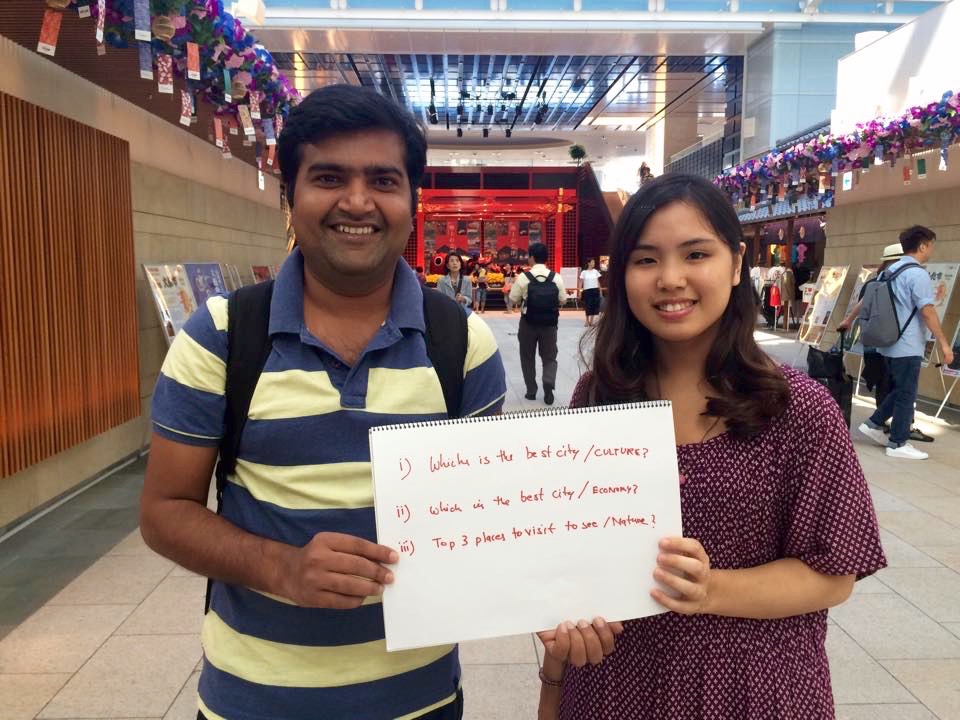 i) Which is the best city /CULTURE?
ii) which is the best city / ECONOMY?
iii) Top 3 places to visit to see /Nature?